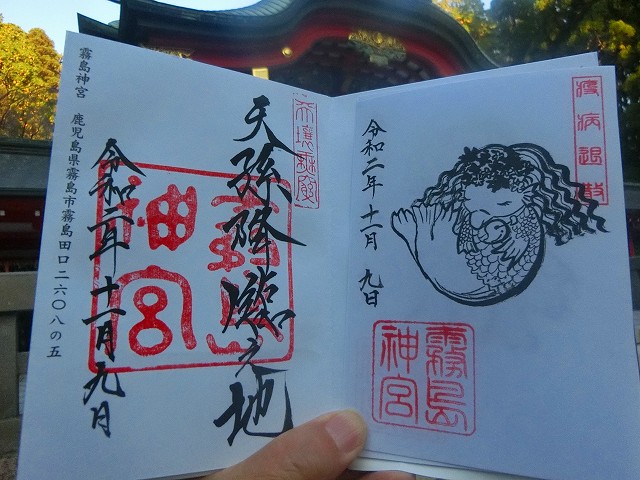 疫病退散
令和二年十一月九日
霧島神宮
天壌無窮
天孫降臨之地
霧島神宮
令和二年十一月九日
霧島神宮 鹿児島県霧島市霧島田口二六〇八の五